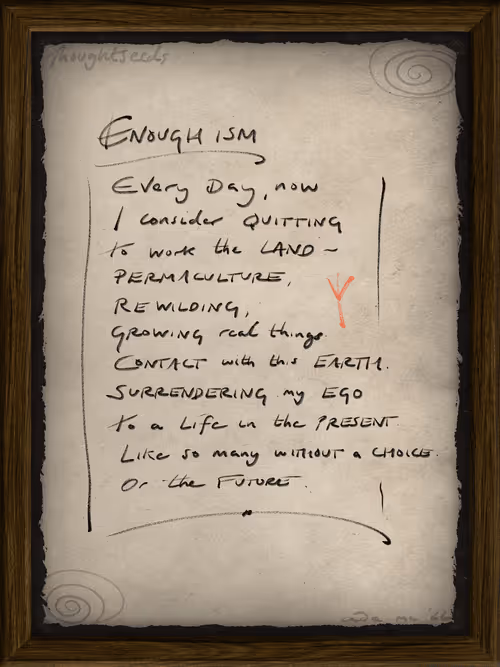 Thoughtseeds
ENOUGH ISM
Every Day, now
I consider QUITTING
to work the LAND ~
PERMACULTURE,
REWILDING,
GROWING real things.
CONTACT with this EARTH.
SURRENDERING my EGO
to a Life in the PRESENT
Like so many WITHOUT a CHOICE.
Or the FUTURE.